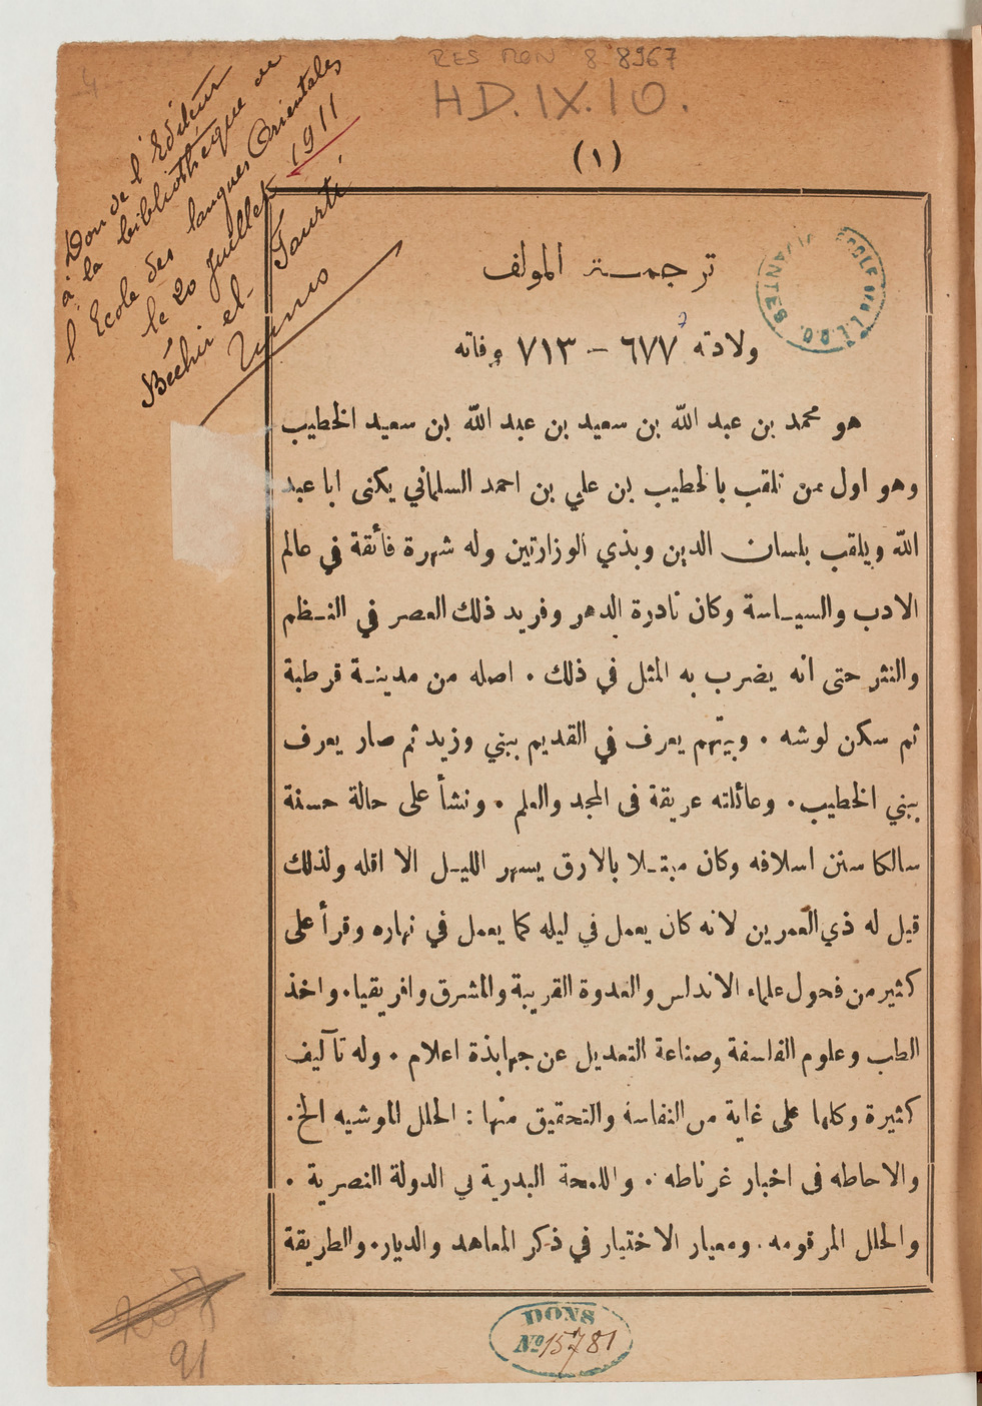 RES MON 8 8967
HD.IX.10.
Don de l'Editeur
à la bibliothèque de
l'Ecole des langues Orientales
le 20 Juillet 1911
Béchir el-Fourti
Tunis
(١)
ترجمة المولف
ولادته ٦٧٧ — ٧١٣ وفاته
هو محمد بن عبد الله بن سعيد بن عبد الله بن سعيد الخطيب
وهو اول من تلقب بالخطيب بن علي بن احمد السلماني يكنى ابا عبد
الله ويلقب بلسان الدين وبذي الوزارتين وله شهرة فأئقة في عالم
الادب والسياسة وكان نادرة الدهر وفريد ذلك العصر في النظم
والنثر حتى انه يضرب به المثل في ذلك . اصله من مدينة قرطبة
ثم سكن لوشه . وبيتهم يعرف في القديم ببني وزيد ثم صار يعرف
ببني الخطيب . وعائلته عريقة فى المجد والعلم . ونشأ على حالة حسنة
سالكا سنن اسلافه وكان مبتلا بالارق يسهر الليل الا اقله ولذلك
قيل له ذي العمرين لانه كان يعمل في ليله كما يعمل في نهاره وقرأ على
كثير من فحول علماء الاندلس والعدوة القريبة والمشرق وافريقيا . واخذ
الطب وعلوم الفلسفة وصناعة التعديل عن جهابذة اعلام . وله تآليف
كثيرة وكلها على غاية من النفاسة والتحقيق منها : الحلل الموشيه الخ .
والاحاطه فى اخبار غرناطه . واللمحة البدرية في الدولة النصرية .
والحلل المرقومه . ومعيار الاختيار في ذكر المعاهد والديار . والطريقة
DONS
No 15781
91